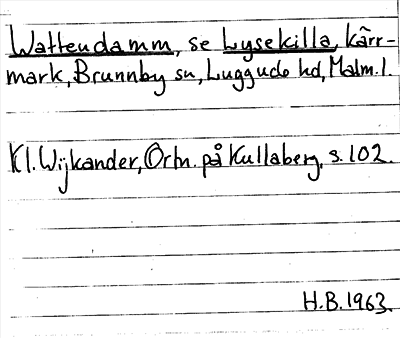 Wattendamm, se Lysekilla, kärr-
mark, Brunnby sn, Luggude hd, Malm. l.
Kl. Wijkander, Ortn. på Kullaberg, s. 102.
H.B. 1963.